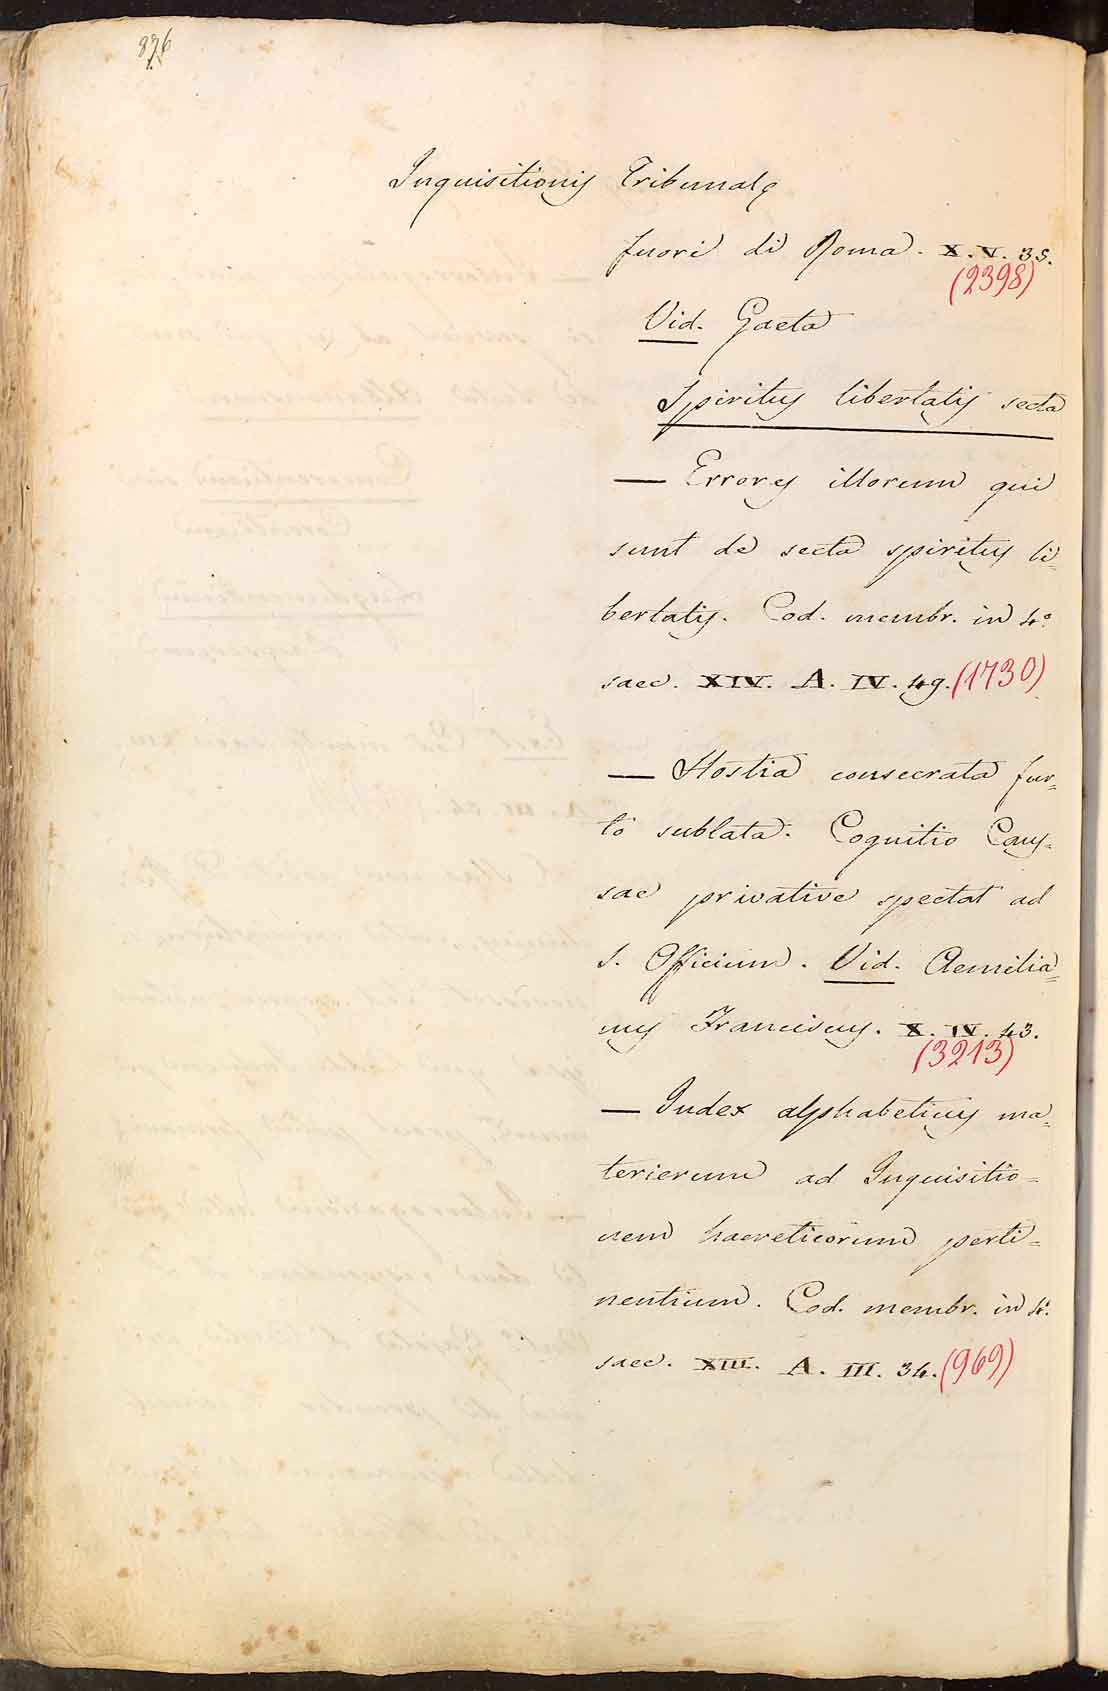 896
Inquisitionis Tribunale
fuori di Roma. X. V. 35.
(2398)
Vid. Gaeta
Spiritus libertatis secta
— Errores illorum qui
sunt de secta spiritus li=
bertatis. Cod. membr. in 4.°
saec. XIV. A. IV. 49. (1730)
— Hostia consecrata fur=
to sublata. Cognitio Caus=
sae privative spectat ad
S. Officium. Vid. Aemilia=
nus Franciscus. X. IV. 43.
(3213)
— Index alphabeticus ma=
terierum ad Inquisitio=
nem haereticorum perti=
nentium. Cod. membr. in 4.°
saec. XIII. A. III. 34. (969)